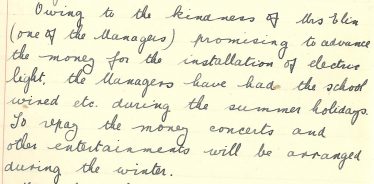 Owing to the kindness of Mrs Elin
(one of the Managers) promising to advance
the money for the installation of electric
light, the Managers have had the school
wired etc. during the summer holidays.
To repay the money concerts and
other entertainments will be arranged
during the winter.